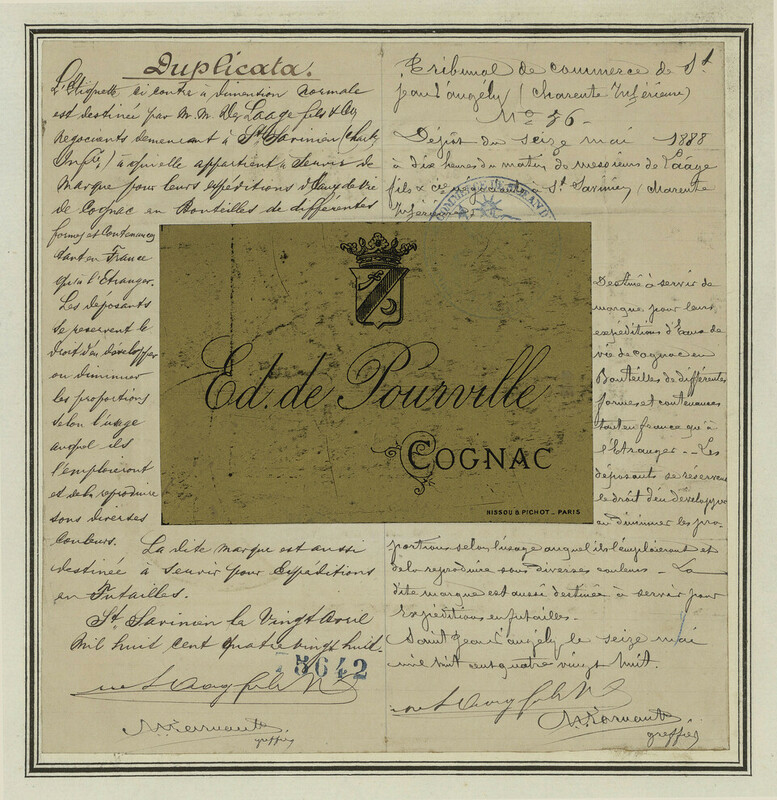 Duplicata.
L'Etiquette ci contre à dimention normale
est destinée par M.M. De Laage fils & Cie
Negociants demeurant à St Savinien (Charte
Infre) à qui elle appartient à Servir de
Marque pour leurs expéditions d'Eaux de Vie
de Cognac en Bouteilles de différentes
formes et Contenances
tant en France
qu'à l'Etranger.
Les deposants
se reservent le
droit d'en développer
ou diminuer
les proportions
selon l'usage
auquel ils
l'emploieront
et de la reproduire
sous diverses
Couleurs. La dite marque est aussi
destinée à Servir pour Expéditions
en Futailles.
St Savinien le Vingt Avril
Mil huit Cent quatre vingt huit.
75642
greffier
Tribunal de commerce de St
Jean d'angély (Charente Inférieure)
No 56-
Dépôt du seize mai 1888
à dix heures du matin de messieurs de Laage
fils & cie négociants à St Savinien (Charente
Inférieure)
Ed. de Pourville
COGNAC
BISSOU & PICHOT _ PARIS
Destiné à servir de
marque pour leurs
expéditions d'Eaux de
vie de cognac en
Bouteilles de différentes
formes et contenances
tant en france qu'à
l'étranger -- Les
déposants se réservent
le droit d'en développer
ou diminuer les pro-
portions selon l'usage auquel ils l'emploieront et
de la reproduire sous diverses couleurs - La
dite marque est aussi destinée à servir pour
expéditions en futailles.
Saint Jean d'angély le seize mai
mil huit cent quatre vingt huit.
greffier